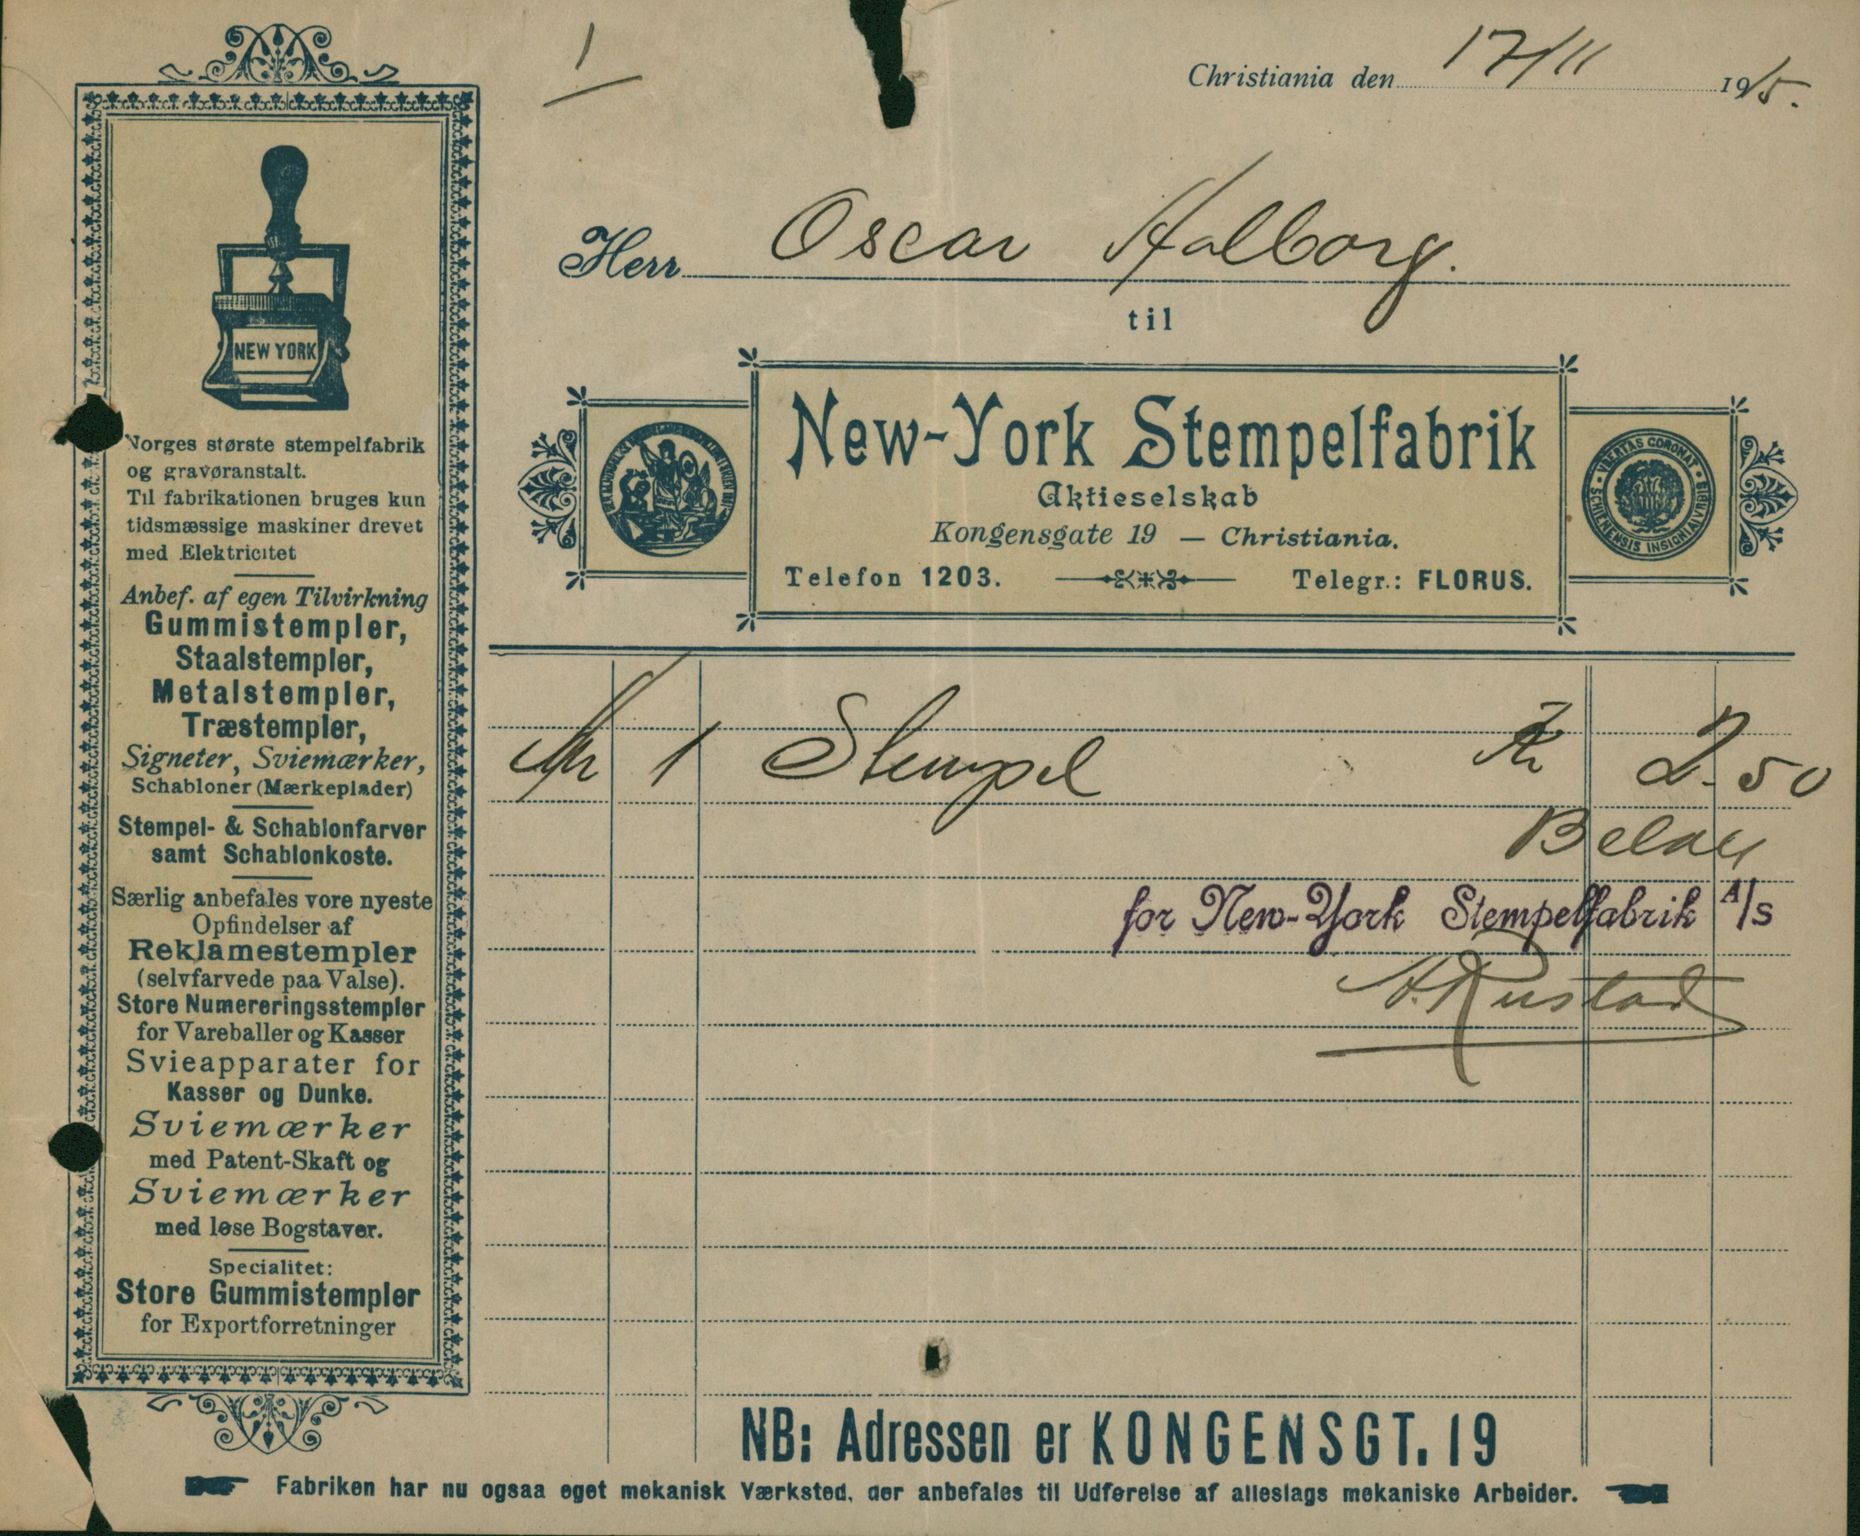 1
Christiania den 17/11 1915.
Herr Oscar Aalborg.
til
New-York Stempelfabrik
Aktieselskab
Kongensgate 19 — Christiania.
Telefon 1203. Telegr.: FLORUS.
UBERTAS CORONAT
SCHIENENSIS INSIGNIA URBIS
NEW YORK
Norges største stempelfabrik
og gravøranstalt.
Til fabrikationen bruges kun
tidsmæssige maskiner drevet
med Elektricitet
Anbef. af egen Tilvirkning
Gummistempler,
Staalstempler,
Metalstempler,
Træstempler,
Signeter, Sviemærker,
Schabloner (Mærkeplader)
Stempel- & Schablonfarver
samt Schablonkoste.
Særlig anbefales vore nyeste
Opfindelser af
Reklamestempler
(selvfarvede paa Valse).
Store Numereringsstempler
for Vareballer og Kasser
Svieapparater for
Kasser og Dunke.
Sviemærker
med Patent-Skaft og
Sviemærker
med løse Bogstaver.
Specialitet:
Store Gummistempler
for Exportforretninger
1 Stempel Kr 2.50
for New-York Stempelfabrik A/S
A. Rustad
NB: Adressen er KONGENSGT. 19
Fabriken har nu ogsaa eget mekanisk Værksted, der anbefales til Udførelse af alleslags mekaniske Arbeider.